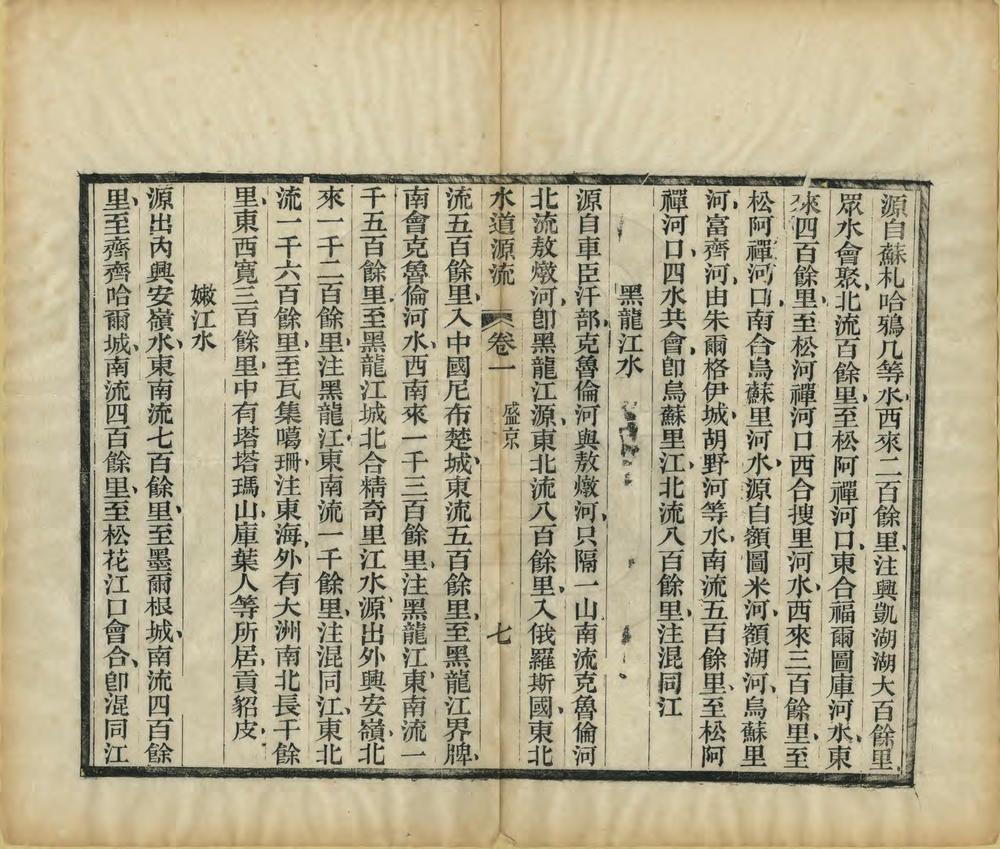 源自蘇札哈鴉几等水西來二百餘里注興凱湖湖大百餘里
眾水會聚北流百餘里至松阿禪河口東合福爾圖庫河水東
來四百餘里至松河禪河口西合搜里河水西來三百餘里至
松阿禪河口南合烏蘇里河水源自額圖米河額湖河烏蘇里
河富齊河由朱爾格伊城胡野河等水南流五百餘里至松阿
禪河口四水共會卽烏蘇里江北流八百餘里注混同江
黑龍江水
源自車臣汗部克魯倫河與敖嫩河只隔一山南流克魯倫河
北流敖嫩河卽黑龍江源東北流八百餘里入俄羅斯國東北
水道源流 卷一 盛京 七
流五百餘里入中國尼布楚城東流五百餘里至黑龍江界牌
南會克魯倫河水西南來一千三百餘里注黑龍江東南流一
千五百餘里至黑龍江城北合精奇里江水源出外興安嶺北
來一千二百餘里注黑龍江東南流一千餘里注混同江東北
流一千六百餘里至瓦集噶珊注東海外有大洲南北長千餘
里東西寬三百餘里中有塔塔瑪山庫葉人等所居貢貂皮
嫩江水
源出內興安嶺水東南流七百餘里至墨爾根城南流四百餘
里至齊齊哈爾城南流四百餘里至松花江口會合卽混同江